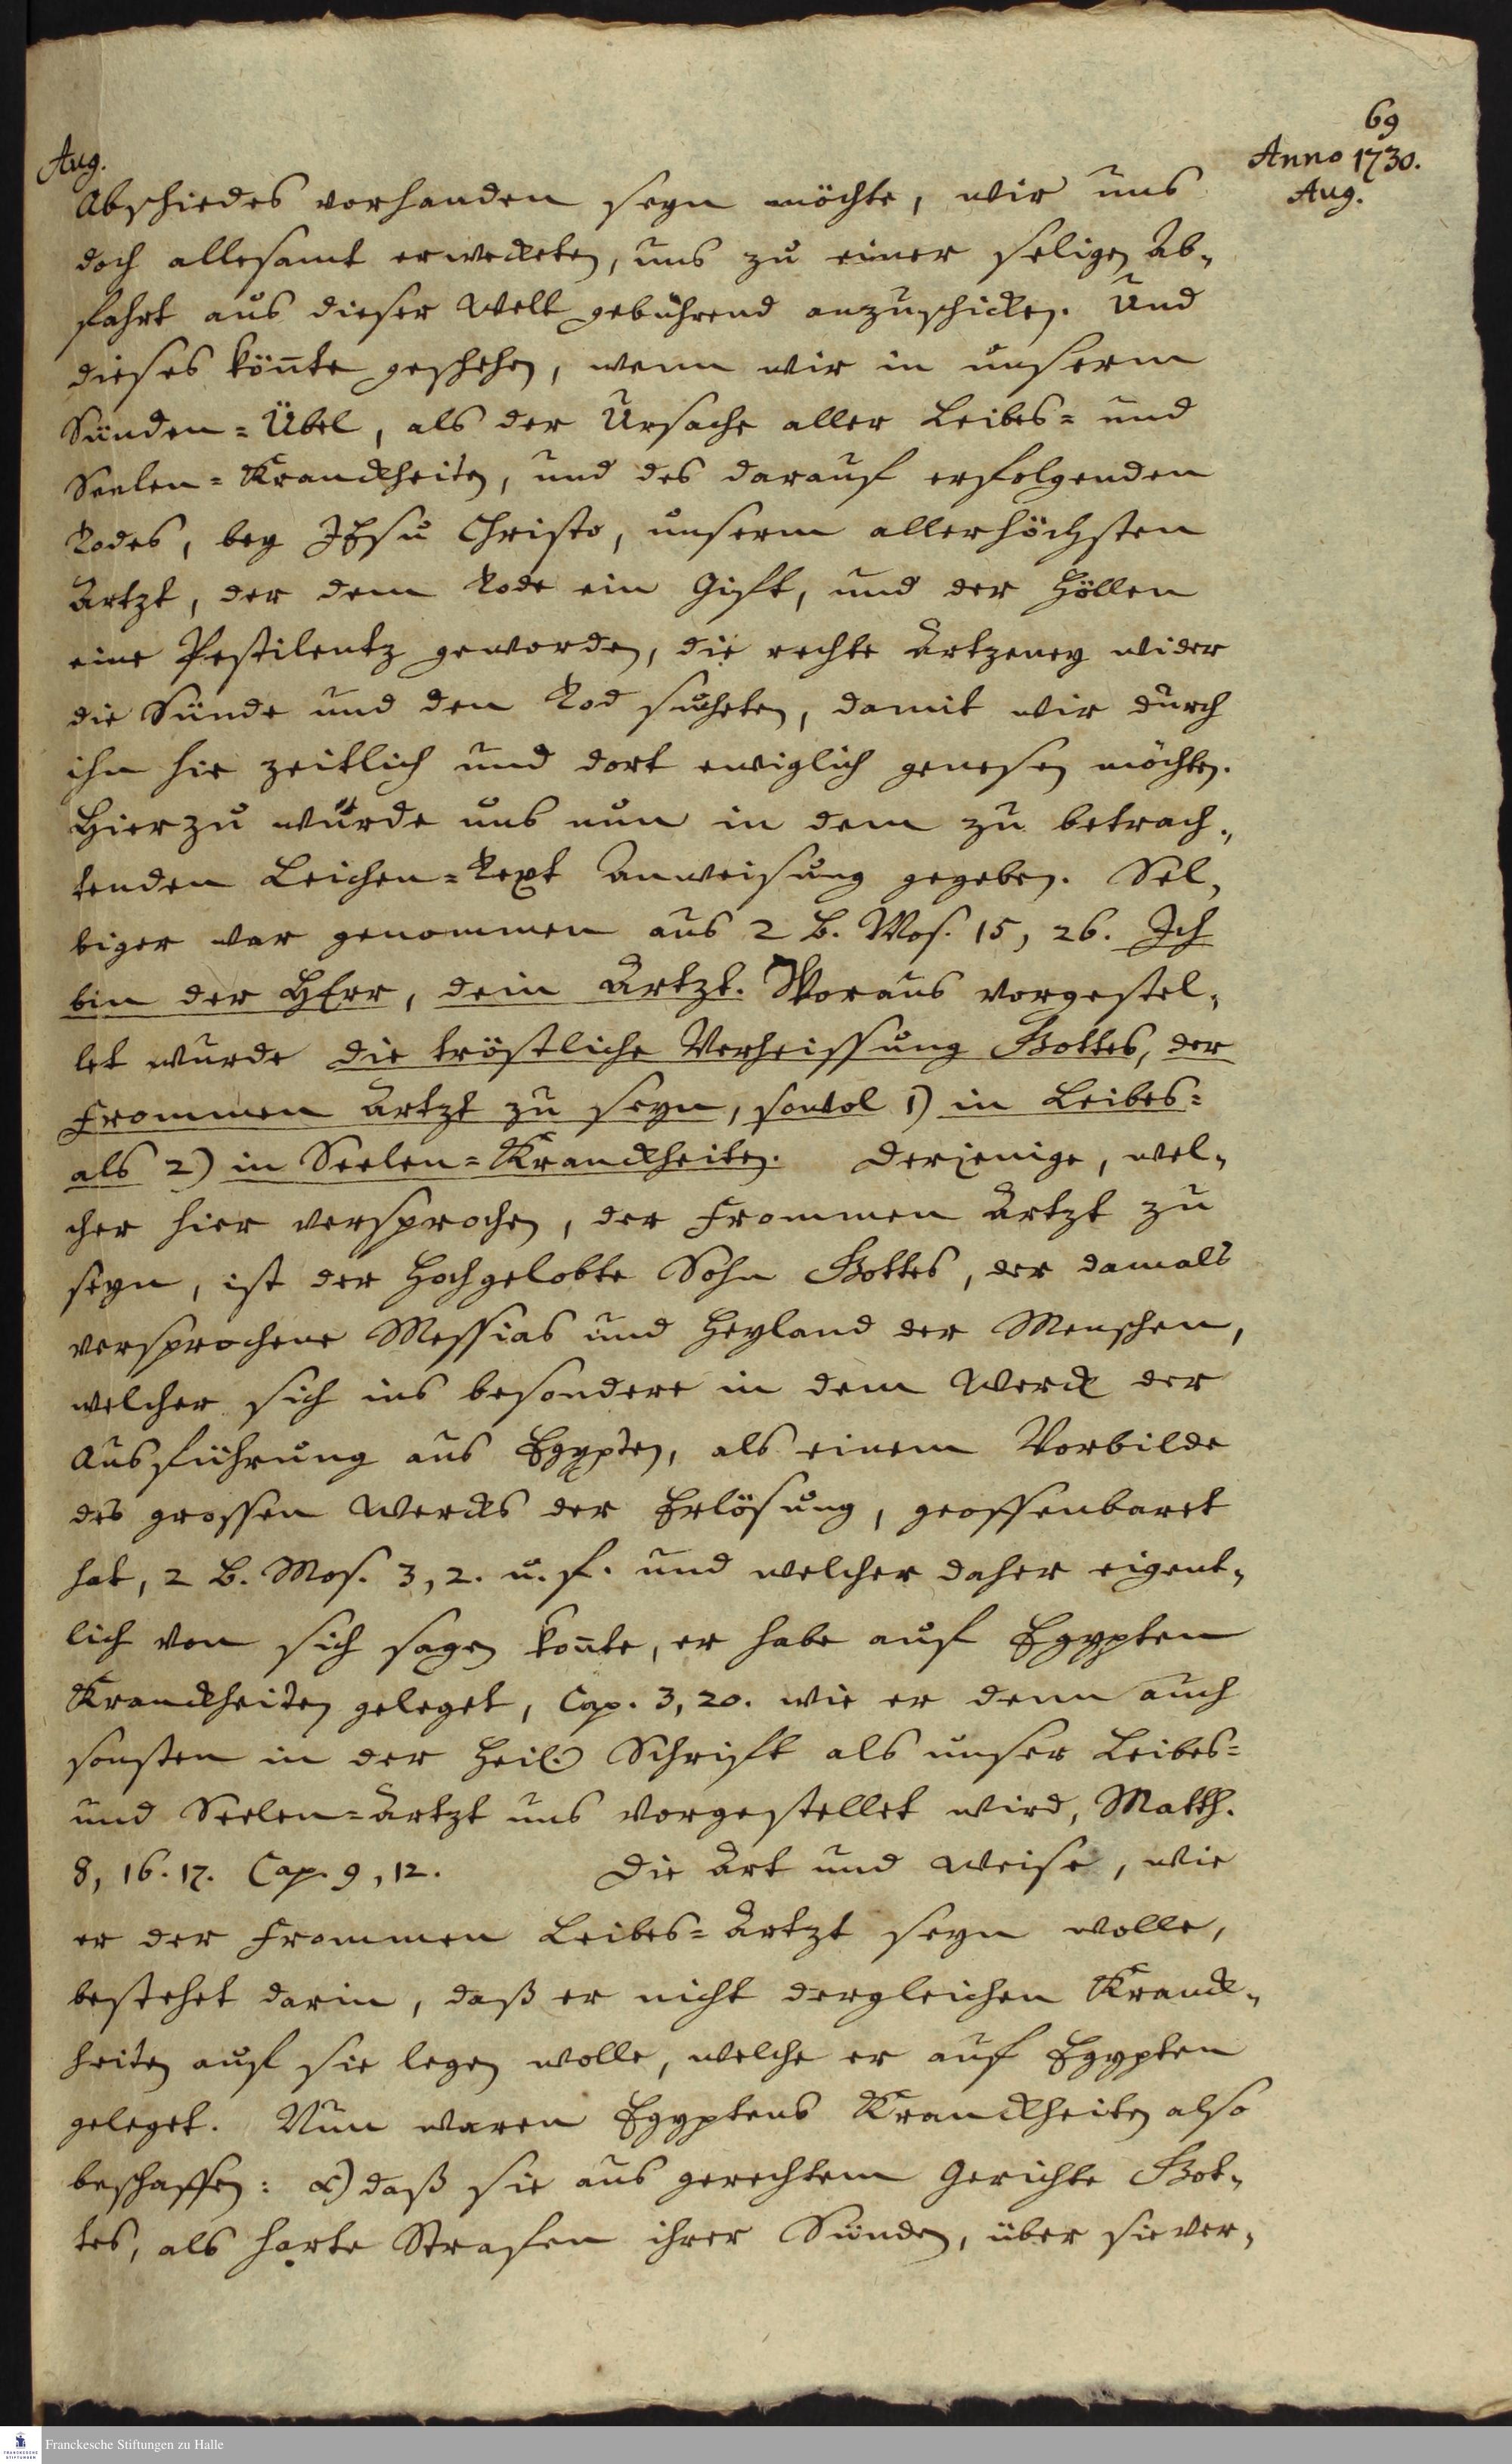 69
Anno 1730.
Aug.
Aug.
Abschiedes vorhanden seyn möchte, wir uns
doch allesamt erweckten, uns zu einer seligen Ab-
fahrt aus dieser Welt gebührend anzuschicken. Und
dieses kön̄te geschehen, wenn wir in unserm
Sünden=Übel, als der Ursache aller Leibes= und
Seelen=Kranckheiten, und des darauf erfolgenden
Todes, bey JEsu Christo, unserm allerhöchsten
Artzt, der dem Tode ein Gift, und der Höllen
eine Pestilentz geworden, die rechte Artzeney wider
die Sünde und den Tod suchten, damit wir durch
ihn hie zeitlich und dort ewiglich genesen möchten.
Hierzu würde uns nun in dem zu betrach-
tenden Leichen=Text Anweisung gegeben. Sel-
biger war genommen aus 2 B. Mos. 15, 26. Ich
bin der HErr, dein Artzt. Woraus vorgestel-
let wurde die tröstliche Verheissung Gottes, der
Frommen Artzt zu seyn, sowol 1) in Leibes=
als 2) in Seelen=Kranckheiten. Derjenige, wel-
cher hier versprochen, der Frommen Artzt zu
seyn, ist der Hochgelobte Sohn Gottes, der damals
versprochene Messias und Heyland der Menschen,
welcher sich ins besondere in dem Werck der
Ausführung aus Egypten, als einem Vorbilde
des grossen Wercks der Erlösung, geoffenbaret
hat, 2 B. Mos. 3, 2. u. f. und welcher daher eigent-
lich von sich sagen kon̄te, er habe auf Egypten
Kranckheiten geleget, Cap. 3, 20. wie er denn auch
sonsten in der Heil. Schrift als unser Leibes=
und Seelen=Artzt uns vorgestellet wird, Matth.
8, 16. 17. Cap. 9, 12. Die Art und Weise, wie
er der Frommen Leibes=Artzt seyn wolle,
bestehet darin, daß er nicht dergleichen Kranck-
heiten auf sie legen wolle, welche er auf Egypten
geleget. Nun waren Egyptens Kranckheiten also
beschaffen: α) daß sie aus gerechtem Gerichte Got-
tes, als harte Strafen ihrer Sünden, über sie ver-
FRANCKESCHE STIFTUNGEN
Franckesche Stiftungen zu Halle